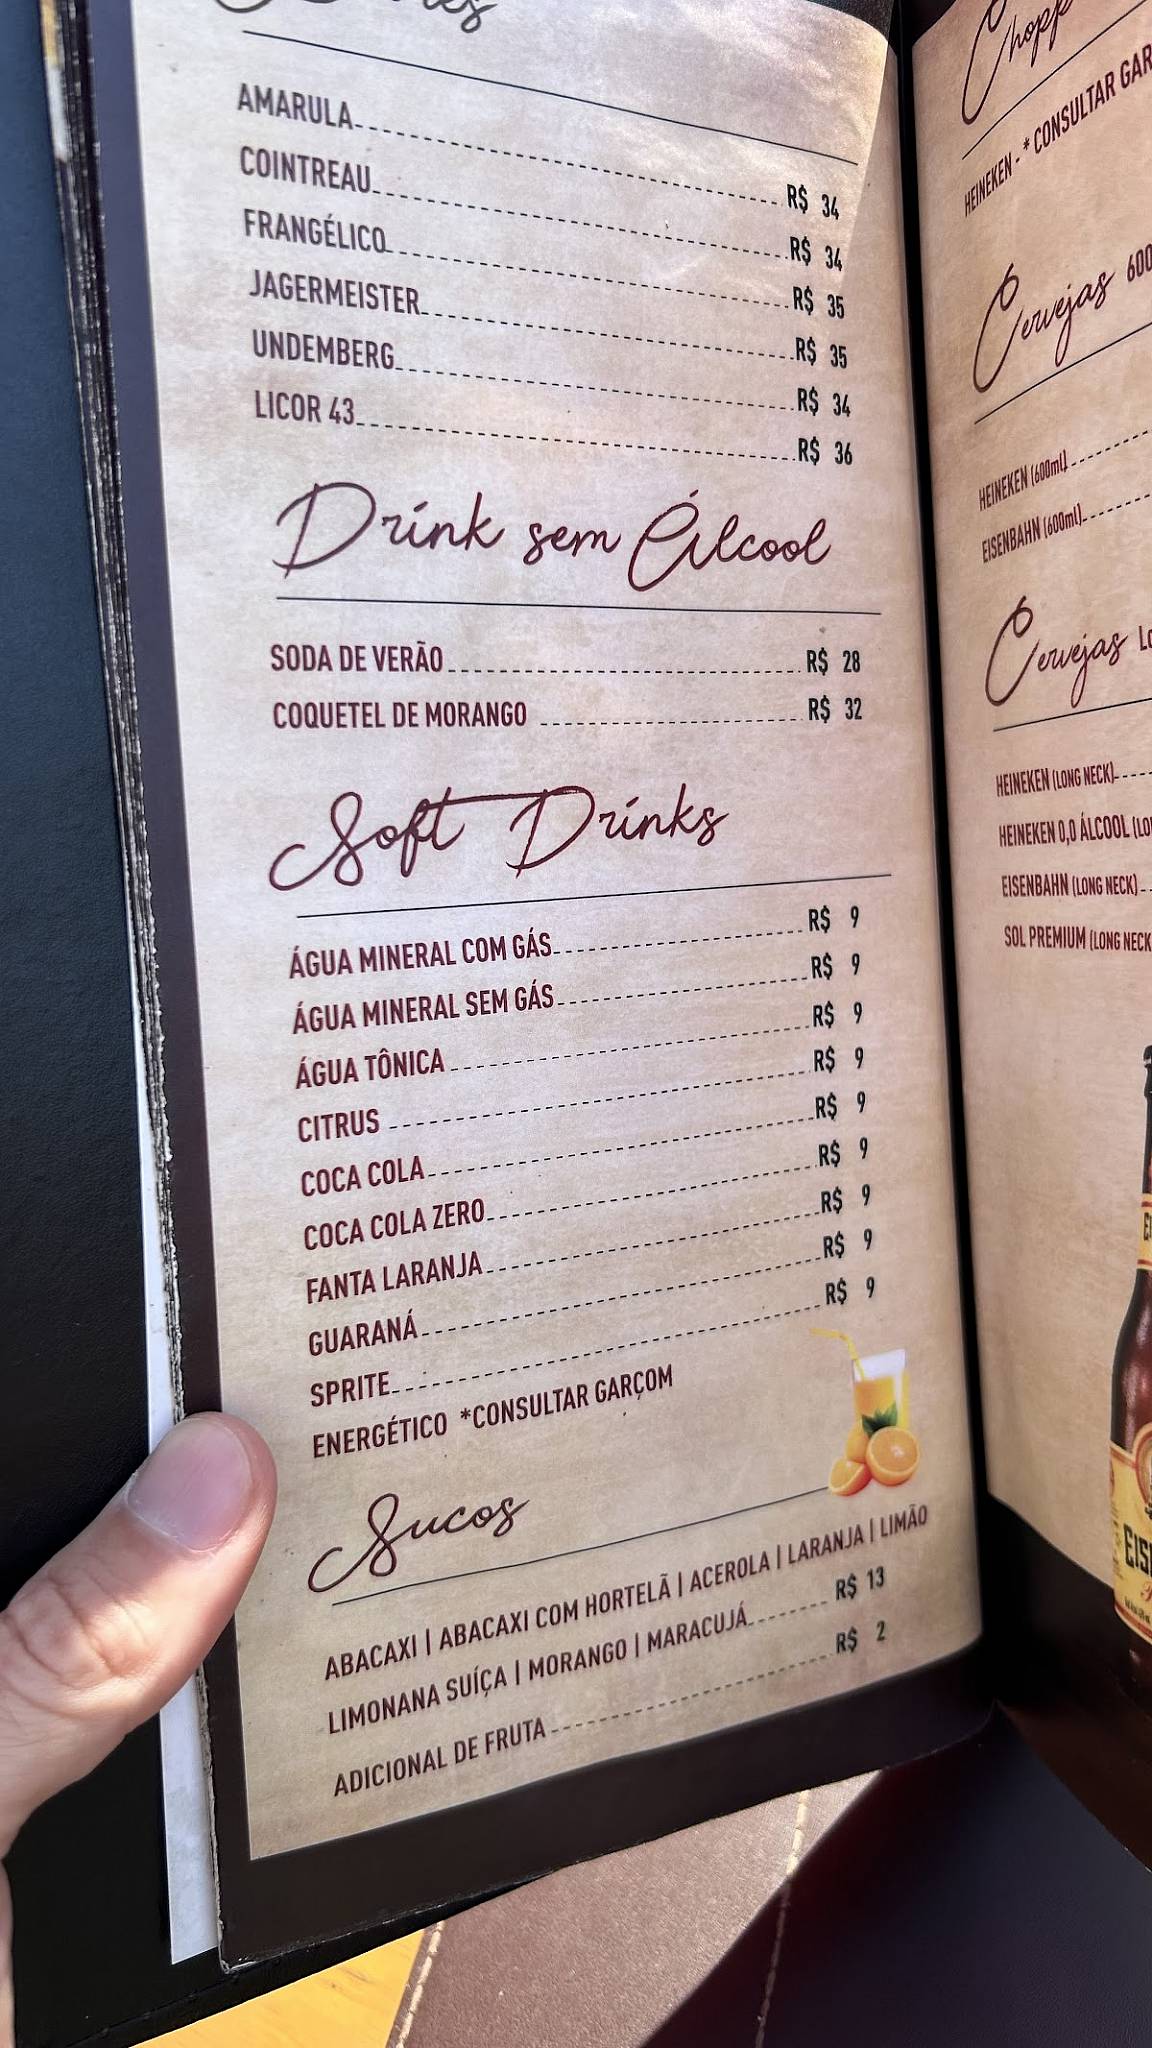 AMARULA R$ 34
COINTREAU R$ 34
FRANGÉLICO R$ 35
JAGERMEISTER R$ 35
UNDEMBERG R$ 34
LICOR 43 R$ 36
Drink sem Álcool
SODA DE VERÃO R$ 28
COQUETEL DE MORANGO R$ 32
Soft Drinks
ÁGUA MINERAL COM GÁS R$ 9
ÁGUA MINERAL SEM GÁS R$ 9
ÁGUA TÔNICA R$ 9
CITRUS R$ 9
COCA COLA R$ 9
COCA COLA ZERO R$ 9
FANTA LARANJA R$ 9
GUARANÁ R$ 9
SPRITE R$ 9
ENERGÉTICO *CONSULTAR GARÇOM
Sucos
ABACAXI | ABACAXI COM HORTELÃ | ACEROLA | LARANJA | LIMÃO
LIMONANA SUÍÇA | MORANGO | MARACUJÁ R$ 13
ADICIONAL DE FRUTA R$ 2
Chopp
HEINEKEN - * CONSULTAR GAR
Cervejas 600
HEINEKEN (600ml)
EISENBAHN (600ml)
Cervejas
HEINEKEN (LONG NECK)
HEINEKEN 0,0 ÁLCOOL
EISENBAHN (LONG NECK)
SOL PREMIUM (LONG NECK